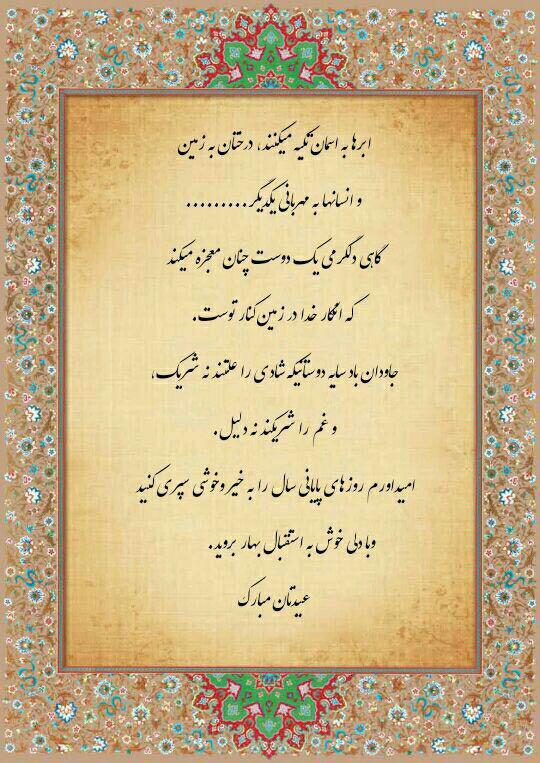 ابرها به اسمان تکیه میکنند، درختان به زمین
و انسانها به مهربانی یکدیگر.........
گاهی دلگرمی یک دوست چنان معجزه میکند
که انگار خدا در زمین کنار توست.
جاودان باد سایه دوستانیکه شادی را علتند نه شریک،
و غم را شریکند نه دلیل.
امیداورم روزهای پایانی سال را به خیر وخوشی سپری کنید
وبا دلی خوش به استقبال بهار بروید.
عیدتان مبارک